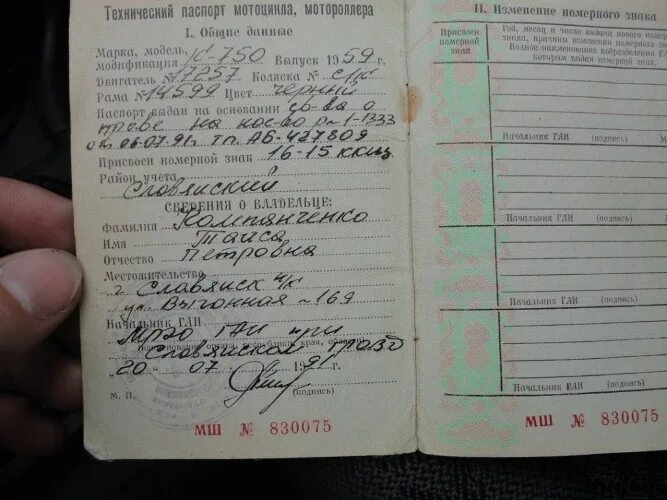 Технический паспорт мотоцикла, мотороллера
I. Общие данные
Марка, модель,
модификация К-750 Выпуск 1959 г.
Двигатель № 17257 Коляска № с/к
Рама № 14599 Цвет черный
Паспорт выдан на основании св-ва о
праве на насл-во р№ 1-1333
от 06.07.91г. тп АБ-427809
Присвоен номерной знак 16-15 ккщ
Район учета
Славянский
СВЕДЕНИЯ О ВЛАДЕЛЬЦЕ:
Фамилия Компанченко
Имя Таиса
Отчество Петровна
Местожительство
г. Славянск н/к
ул. Выгонная - 169
Начальник ГАИ
МРЭО ГАИ при
Славянском
„20“ 07 1991 г.
М. П. (подпись)
МШ № 830075
II. Изменение номерного знака
Присвоен
номерной
знак
Год, месяц и число выдачи нового номерного
знака, причина изменения номерного знака
Полное наименование подразделения ГАИ
которым выдан номерной знак.
Начальник ГАИ (подпись) М.
Начальник ГАИ (подпись)
Начальник ГАИ (подпись)
Начальник ГАИ (подпись)
МШ № 830075